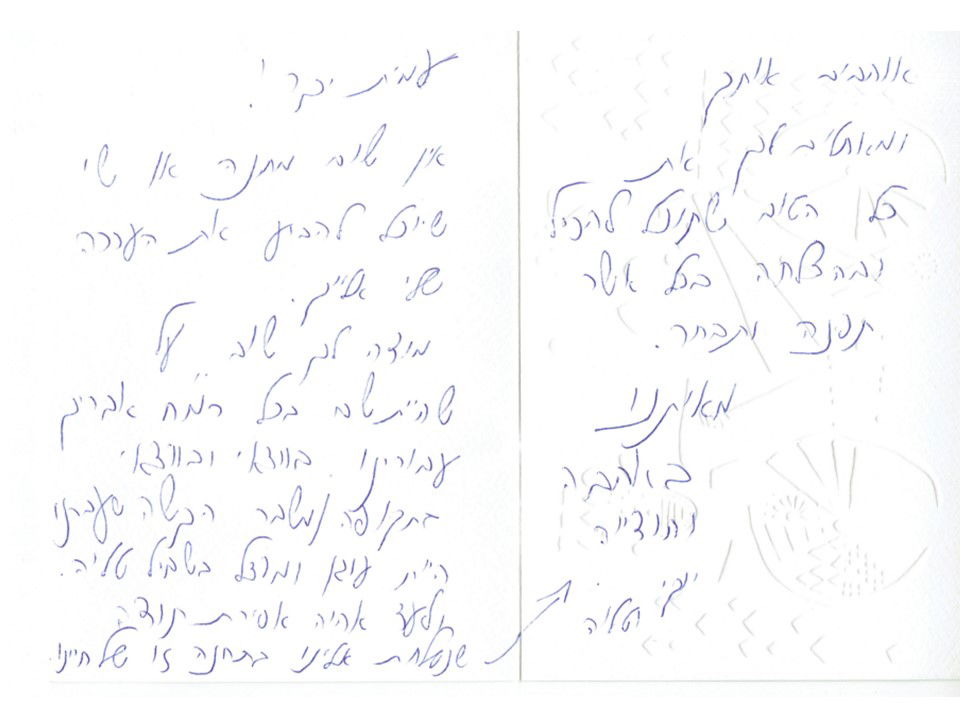 עמית יקר!
אין שום מתנה או שי
שיוכל להביע את הערכה
שלי אלייך.
מודה לך שוב על
שהיית שם בכל רמ"ח אבריך
עבורינו בוודאי ובוודאי
בתקופה ומשבר הקשה שעברנו
היית עוגן ומודל בשביל טליה.
ולעד אהיה אסירת תודה
שנשלחת אלינו בתחנה זו של חיינו
אוהבים אותך
ומאחלים לך את
כל הטוב שתוכל להכיל
ובהצלחה בכל אשר
תפנה ותבחר.
מאיתנו
באהבה
ותודייה
וטליה